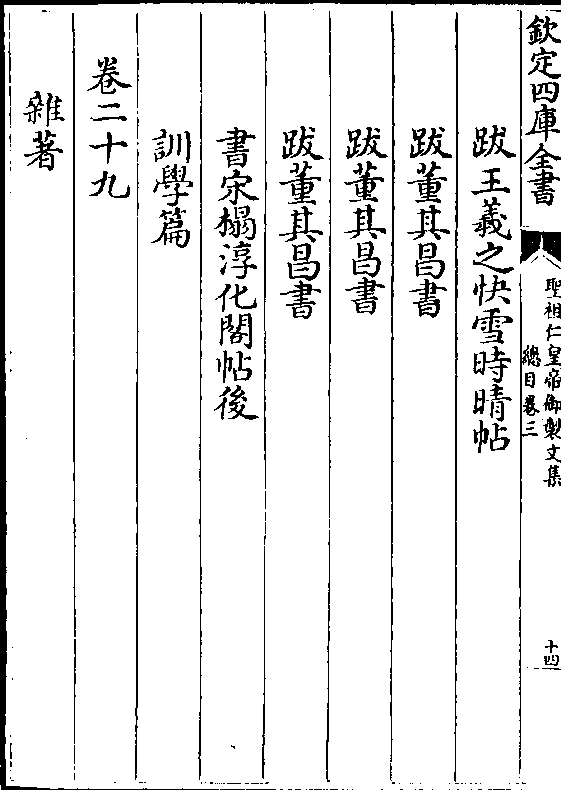 欽定四庫全書
聖祖仁皇帝御製文集
總目卷三
十四
跋王羲之快雪時晴帖
跋董其昌書
跋董其昌書
跋董其昌書
書宋榻淳化閣帖後
訓學篇
卷二十九
雜著